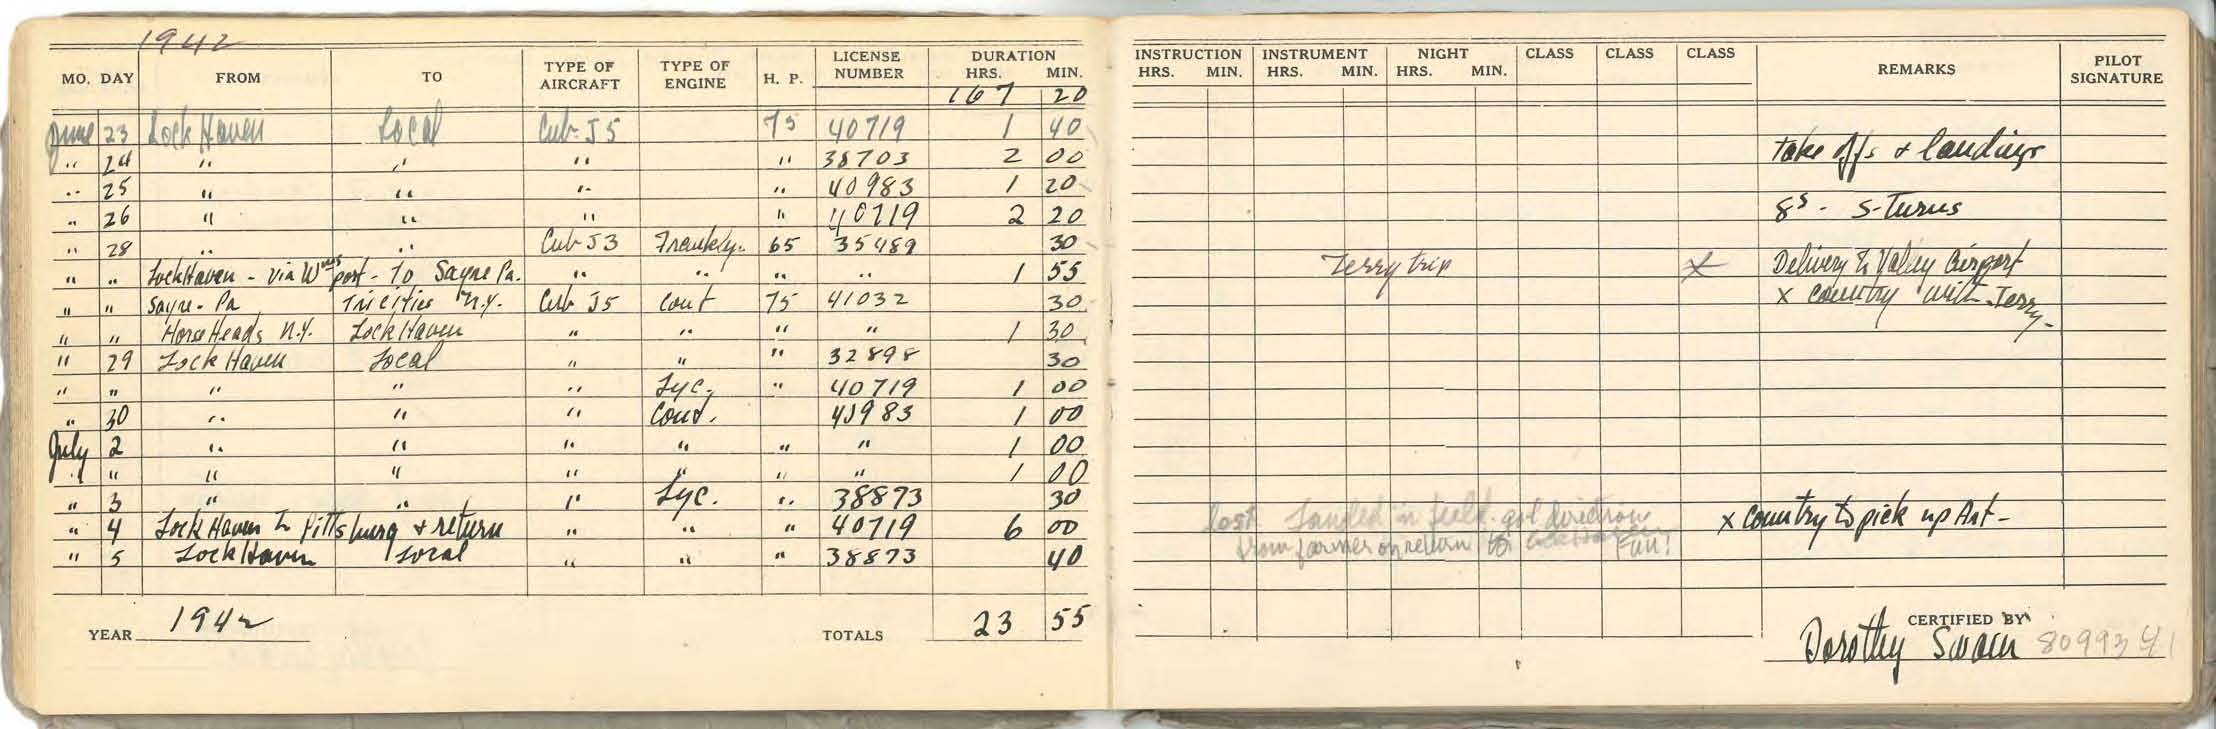 1942
MO. DAY FROM TO TYPE OF AIRCRAFT TYPE OF ENGINE H. P. LICENSE NUMBER DURATION HRS. MIN.
167 20
June 23 Lock Haven Local Cub J5 75 40719 1 40
" 24 " " " " 38703 2 00
" 25 " " " " 40983 1 20
" 26 " " " " 40719 2 20
" 28 " " Cub J3 Frankly. 65 35489 30
" " Lock Haven - via Wmsport - to Sayre Pa. " " " " 1 55
" " Sayre - Pa Tri Cities N.Y. Cub J5 Cont 75 41032 30
" " Horse Heads N.Y. Lock Haven " " " " 1 30
" 29 Lock Haven Local " " " 32898 30
" " " " " Lyc. " 40719 1 00
" 30 " " " Cont. 40983 1 00
July 2 " " " " " " 1 00
" " " " " " " " 1 00
" 3 " " " Lyc. " 38873 30
" 4 Lock Haven to Pittsburg & return " " " 40719 6 00
" 5 Lock Haven Local " " " 38873 40
YEAR 1942 TOTALS 23 55
INSTRUCTION HRS. MIN. INSTRUMENT HRS. MIN. NIGHT HRS. MIN. CLASS CLASS CLASS REMARKS PILOT SIGNATURE
Take offs & landings
8s - S-Turns
Ferry trip x Delivery to Valey Airport
x country with Jerry-
lost landed in field. got direction x country to pick up Art-
from farmer on return to Fun!
CERTIFIED BY
Dorothy Swain 80993 41